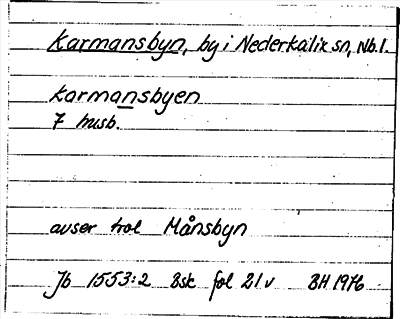 Karmansbyn, by i Nederkalix sn, Nb. l.
Karmansbyen
7 husb.
avser trol Månsbyn
Jb 1553:2 Bsk fol 21v BH 1976